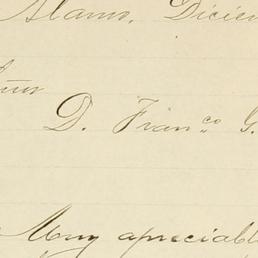 Alamo, Dicie
D. Franco G.
Muy apreciabl